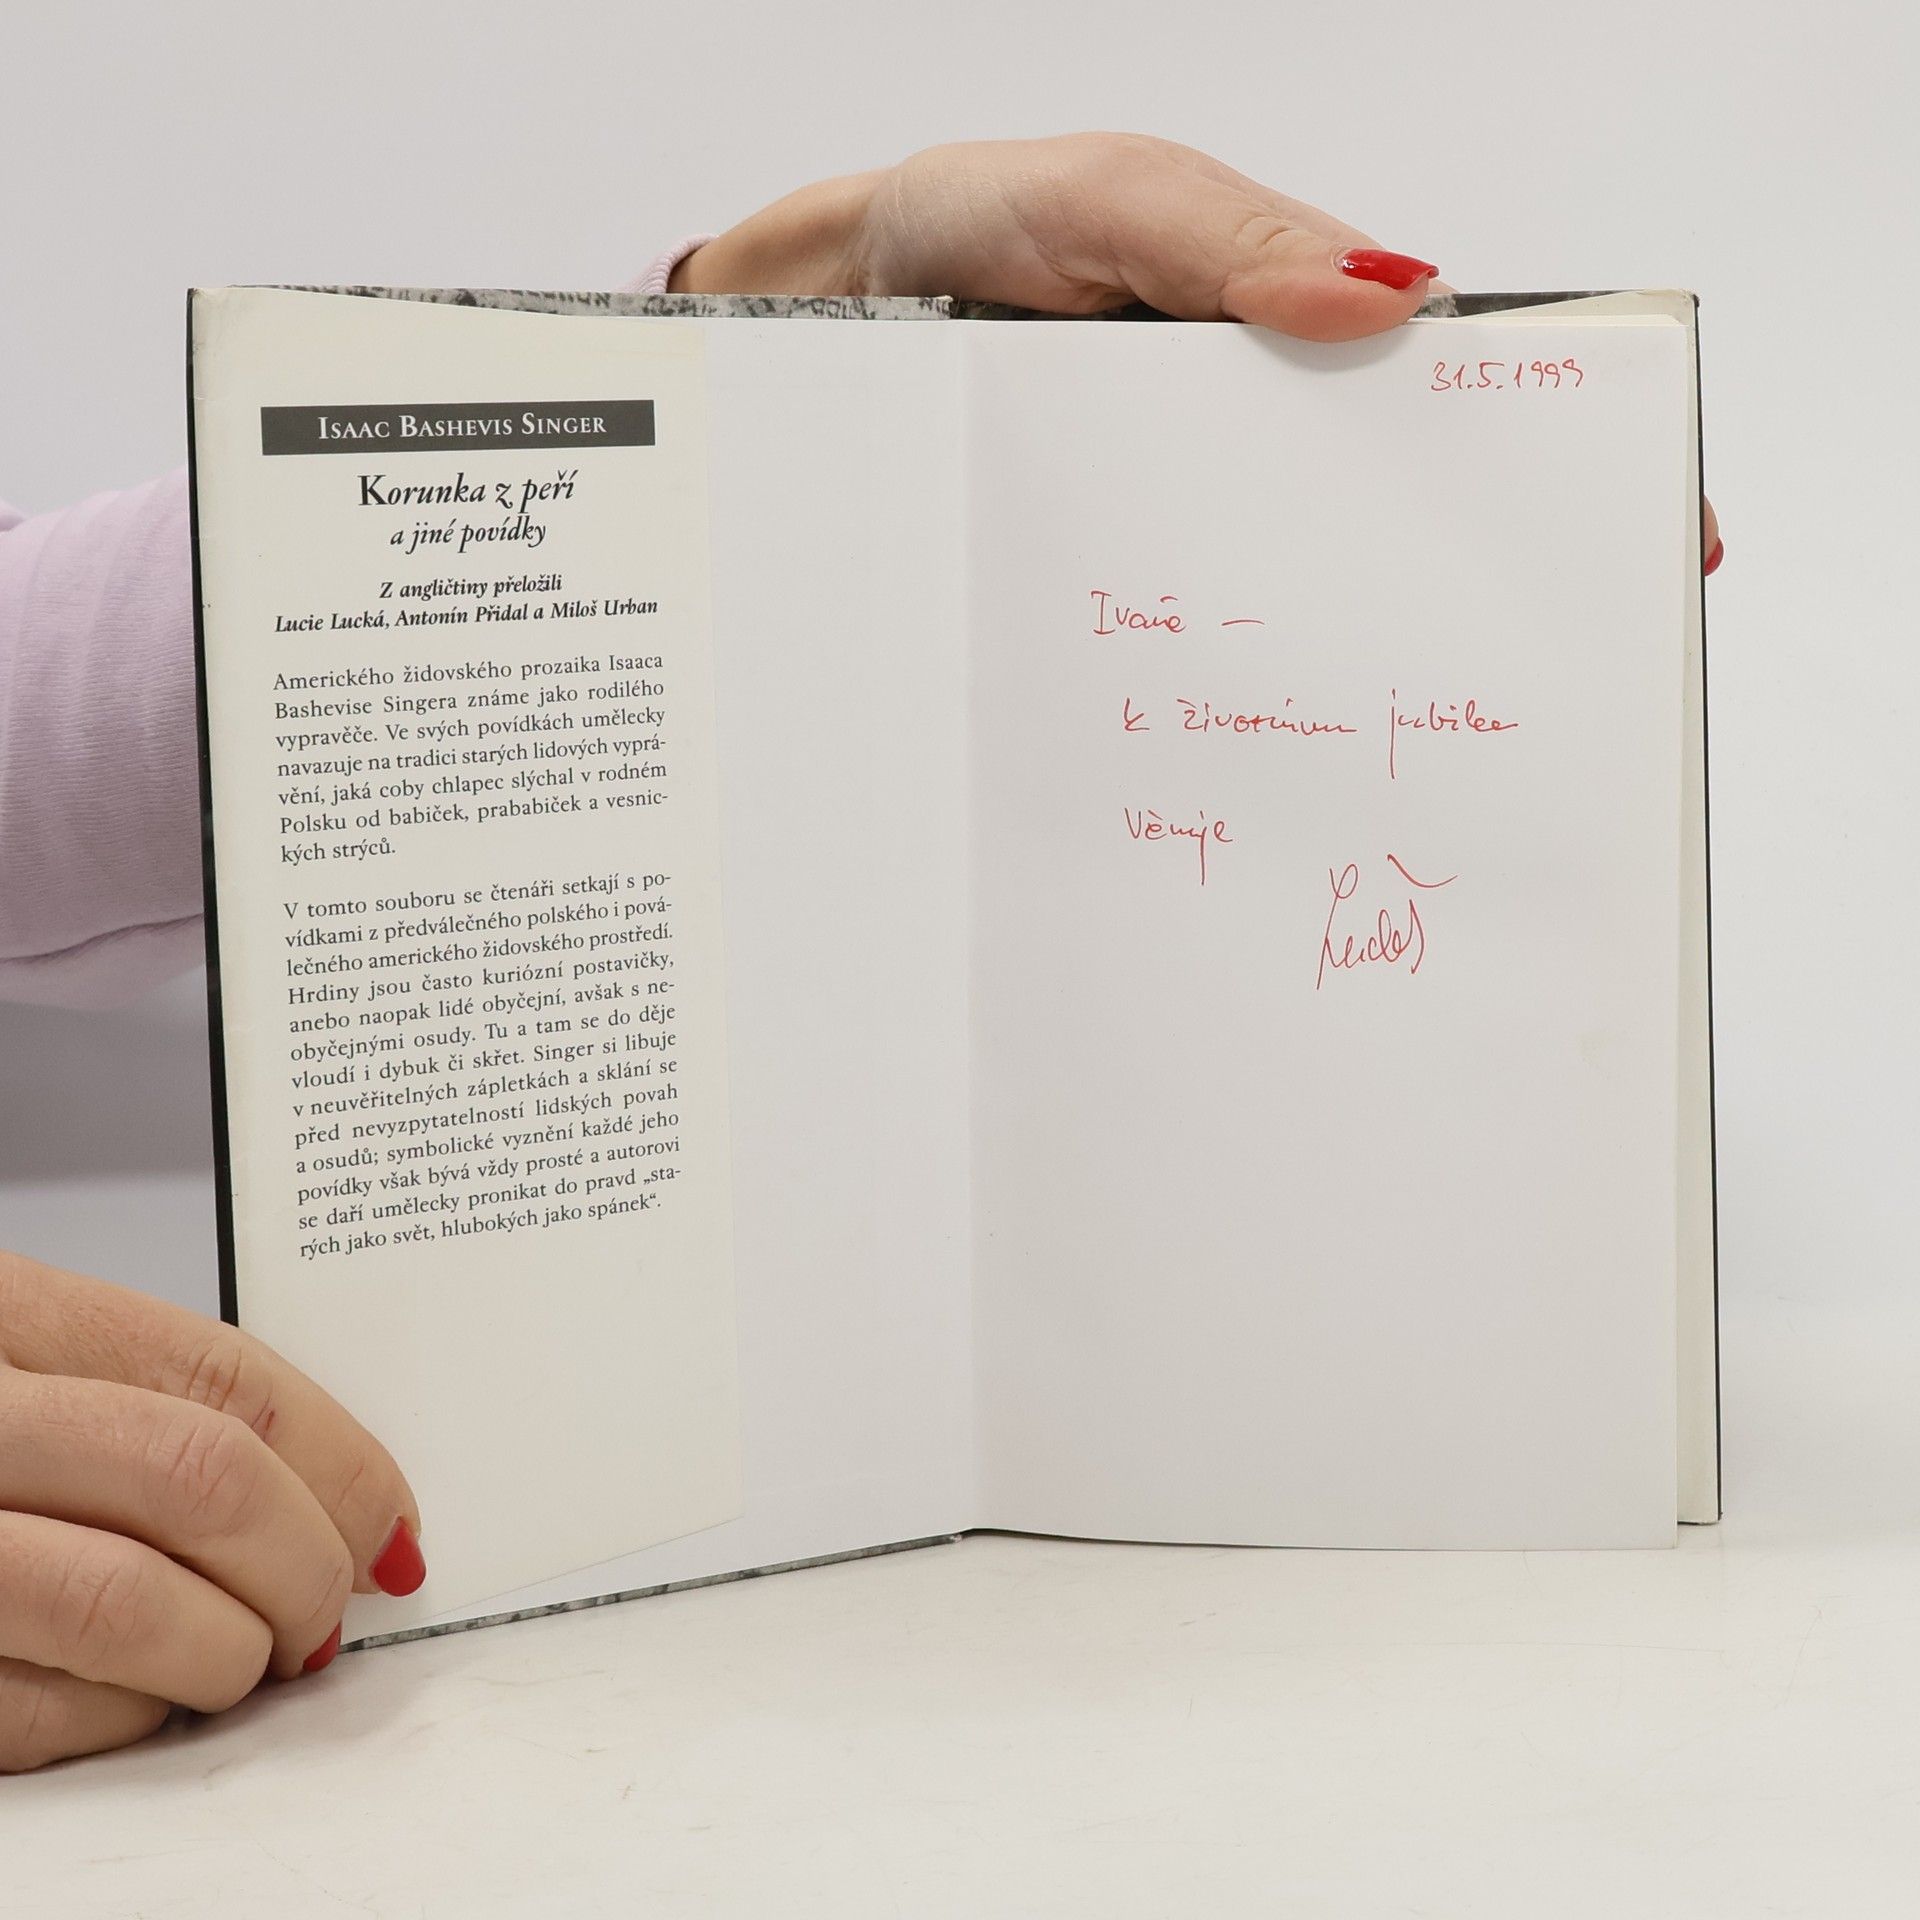 ISAAC BASHEVIS SINGER
Korunka z peří
a jiné povídky
Z angličtiny přeložili
Lucie Lucká, Antonín Přidal a Miloš Urban
Amerického židovského prozaika Isaaca
Bashevise Singera známe jako rodilého
vypravěče. Ve svých povídkách umělecky
navazuje na tradici starých lidových vyprá-
vění, jaká coby chlapec slýchal v rodném
Polsku od babiček, prababiček a vesnic-
kých strýců.
V tomto souboru se čtenáři setkají s po-
vídkami z předválečného polského i pová-
lečného amerického židovského prostředí.
Hrdiny jsou často kuriózní postavičky,
anebo naopak lidé obyčejní, avšak s ne-
obyčejnými osudy. Tu a tam se do děje
vloudí i dybuk či skřet. Singer si libuje
v neuvěřitelných zápletkách a sklání se
před nevyzpytatelností lidských povah
a osudů; symbolické vyznění každé jeho
povídky však bývá vždy prosté a autorovi
se daří umělecky pronikat do pravd „sta-
rých jako svět, hlubokých jako spánek“.
31.5.1999
Ivaně —
k životnímu jubileu
Věnuje